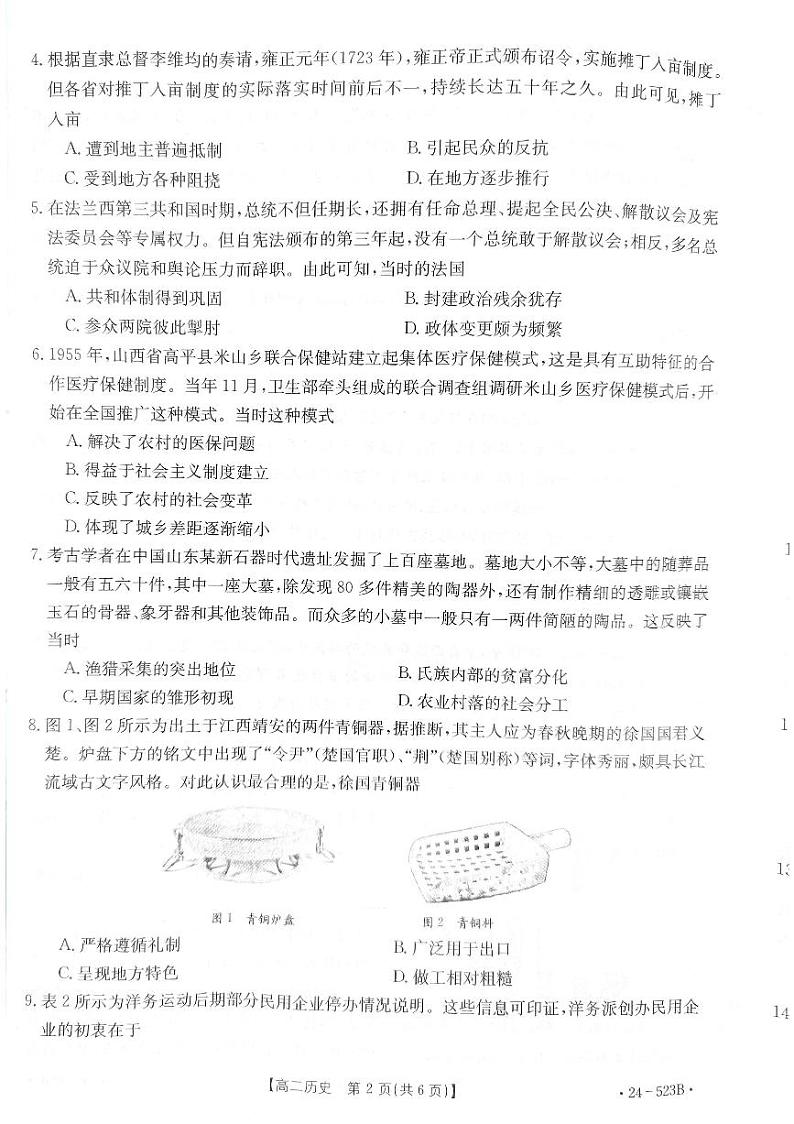 4. 根据直隶总督李维均的奏请,雍正元年(1723 年),雍正帝正式颁布诏令,实施摊丁入亩制度。
但各省对推丁入亩制度的实际落实时间前后不一,持续长达五十年之久。由此可见,摊丁
入亩
A. 遭到地主普遍抵制 B. 引起民众的反抗
C. 受到地方各种阻挠 D. 在地方逐步推行
5. 在法兰西第三共和国时期,总统不但任期长,还拥有任命总理、提起全民公决、解散议会及宪
法委员会等专属权力。但自宪法颁布的第三年起,没有一个总统敢于解散议会;相反,多名总
统迫于众议院和舆论压力而辞职。由此可知,当时的法国
A. 共和体制得到巩固 B. 封建政治残余犹存
C. 参众两院彼此掣肘 D. 政体变更颇为频繁
6. 1955 年,山西省高平县米山乡联合保健站建立起集体医疗保健模式,这是具有互助特征的合
作医疗保健制度。当年 11 月,卫生部牵头组成的联合调查组调研米山乡医疗保健模式后,开
始在全国推广这种模式。当时这种模式
A. 解决了农村的医保问题
B. 得益于社会主义制度建立
C. 反映了农村的社会变革
D. 体现了城乡差距逐渐缩小
7. 考古学者在中国山东某新石器时代遗址发掘了上百座墓地。墓地大小不等,大墓中的随葬品
一般有五六十件,其中一座大墓,除发现 80 多件精美的陶器外,还有制作精细的透雕或镶嵌
玉石的骨器、象牙器和其他装饰品。而众多的小墓中一般只有一两件简陋的陶品。这反映了
当时
A. 渔猎采集的突出地位 B. 氏族内部的贫富分化
C. 早期国家的雏形初现 D. 农业村落的社会分工
8. 图 1、图 2 所示为出土于江西靖安的两件青铜器,据推断,其主人应为春秋晚期的徐国国君义
楚。炉盘下方的铭文中出现了“令尹”(楚国官职)、“荆”(楚国别称)等词,字体秀丽,颇具长江
流域古文字风格。对此认识最合理的是,徐国青铜器
图 1 青铜炉盘 图 2 青铜料
A. 严格遵循礼制 B. 广泛用于出口
C. 呈现地方特色 D. 做工相对粗糙
9. 表 2 所示为洋务运动后期部分民用企业停办情况说明。这些信息可印证,洋务派创办民用企
业的初衷在于
【高二历史 第 2 页(共 6 页)】 ·24-523B·
1
1
13
14